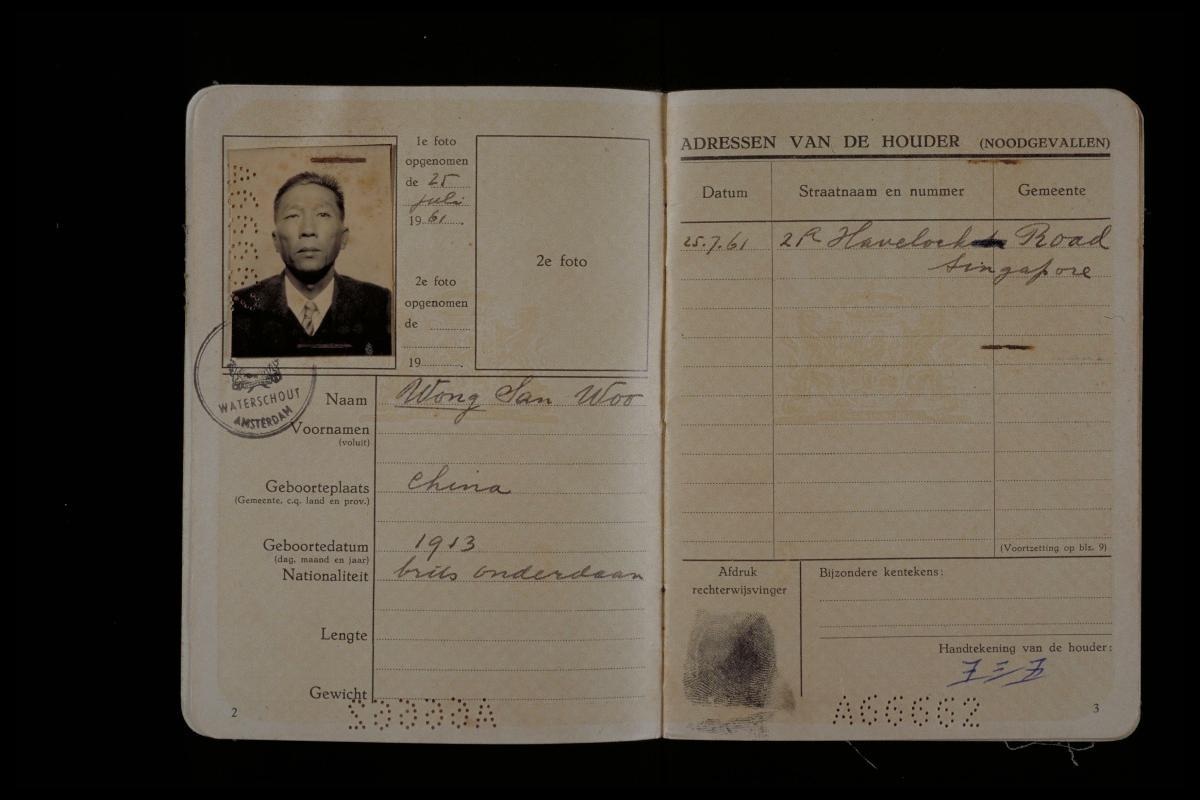 1e foto
opgenomen
de 25
juli
1961
2e foto
opgenomen
de
19
2e foto
WATERSCHOUT
AMSTERDAM
Naam Wong San Woo
Voornamen
(voluit)
Geboorteplaats China
(Gemeente, c.q. land en prov.)
Geboortedatum 1913
(dag, maand en jaar)
Nationaliteit brits onderdaan
Lengte
Gewicht
2
ADRESSEN VAN DE HOUDER (NOODGEVALLEN)
Datum Straatnaam en nummer Gemeente
25.7.61 Havelock Road
Singapore
(Voortzetting op blz. 9)
Afdruk
rechterwijsvinger
Bijzondere kentekens:
Handtekening van de houder:
王三五
3